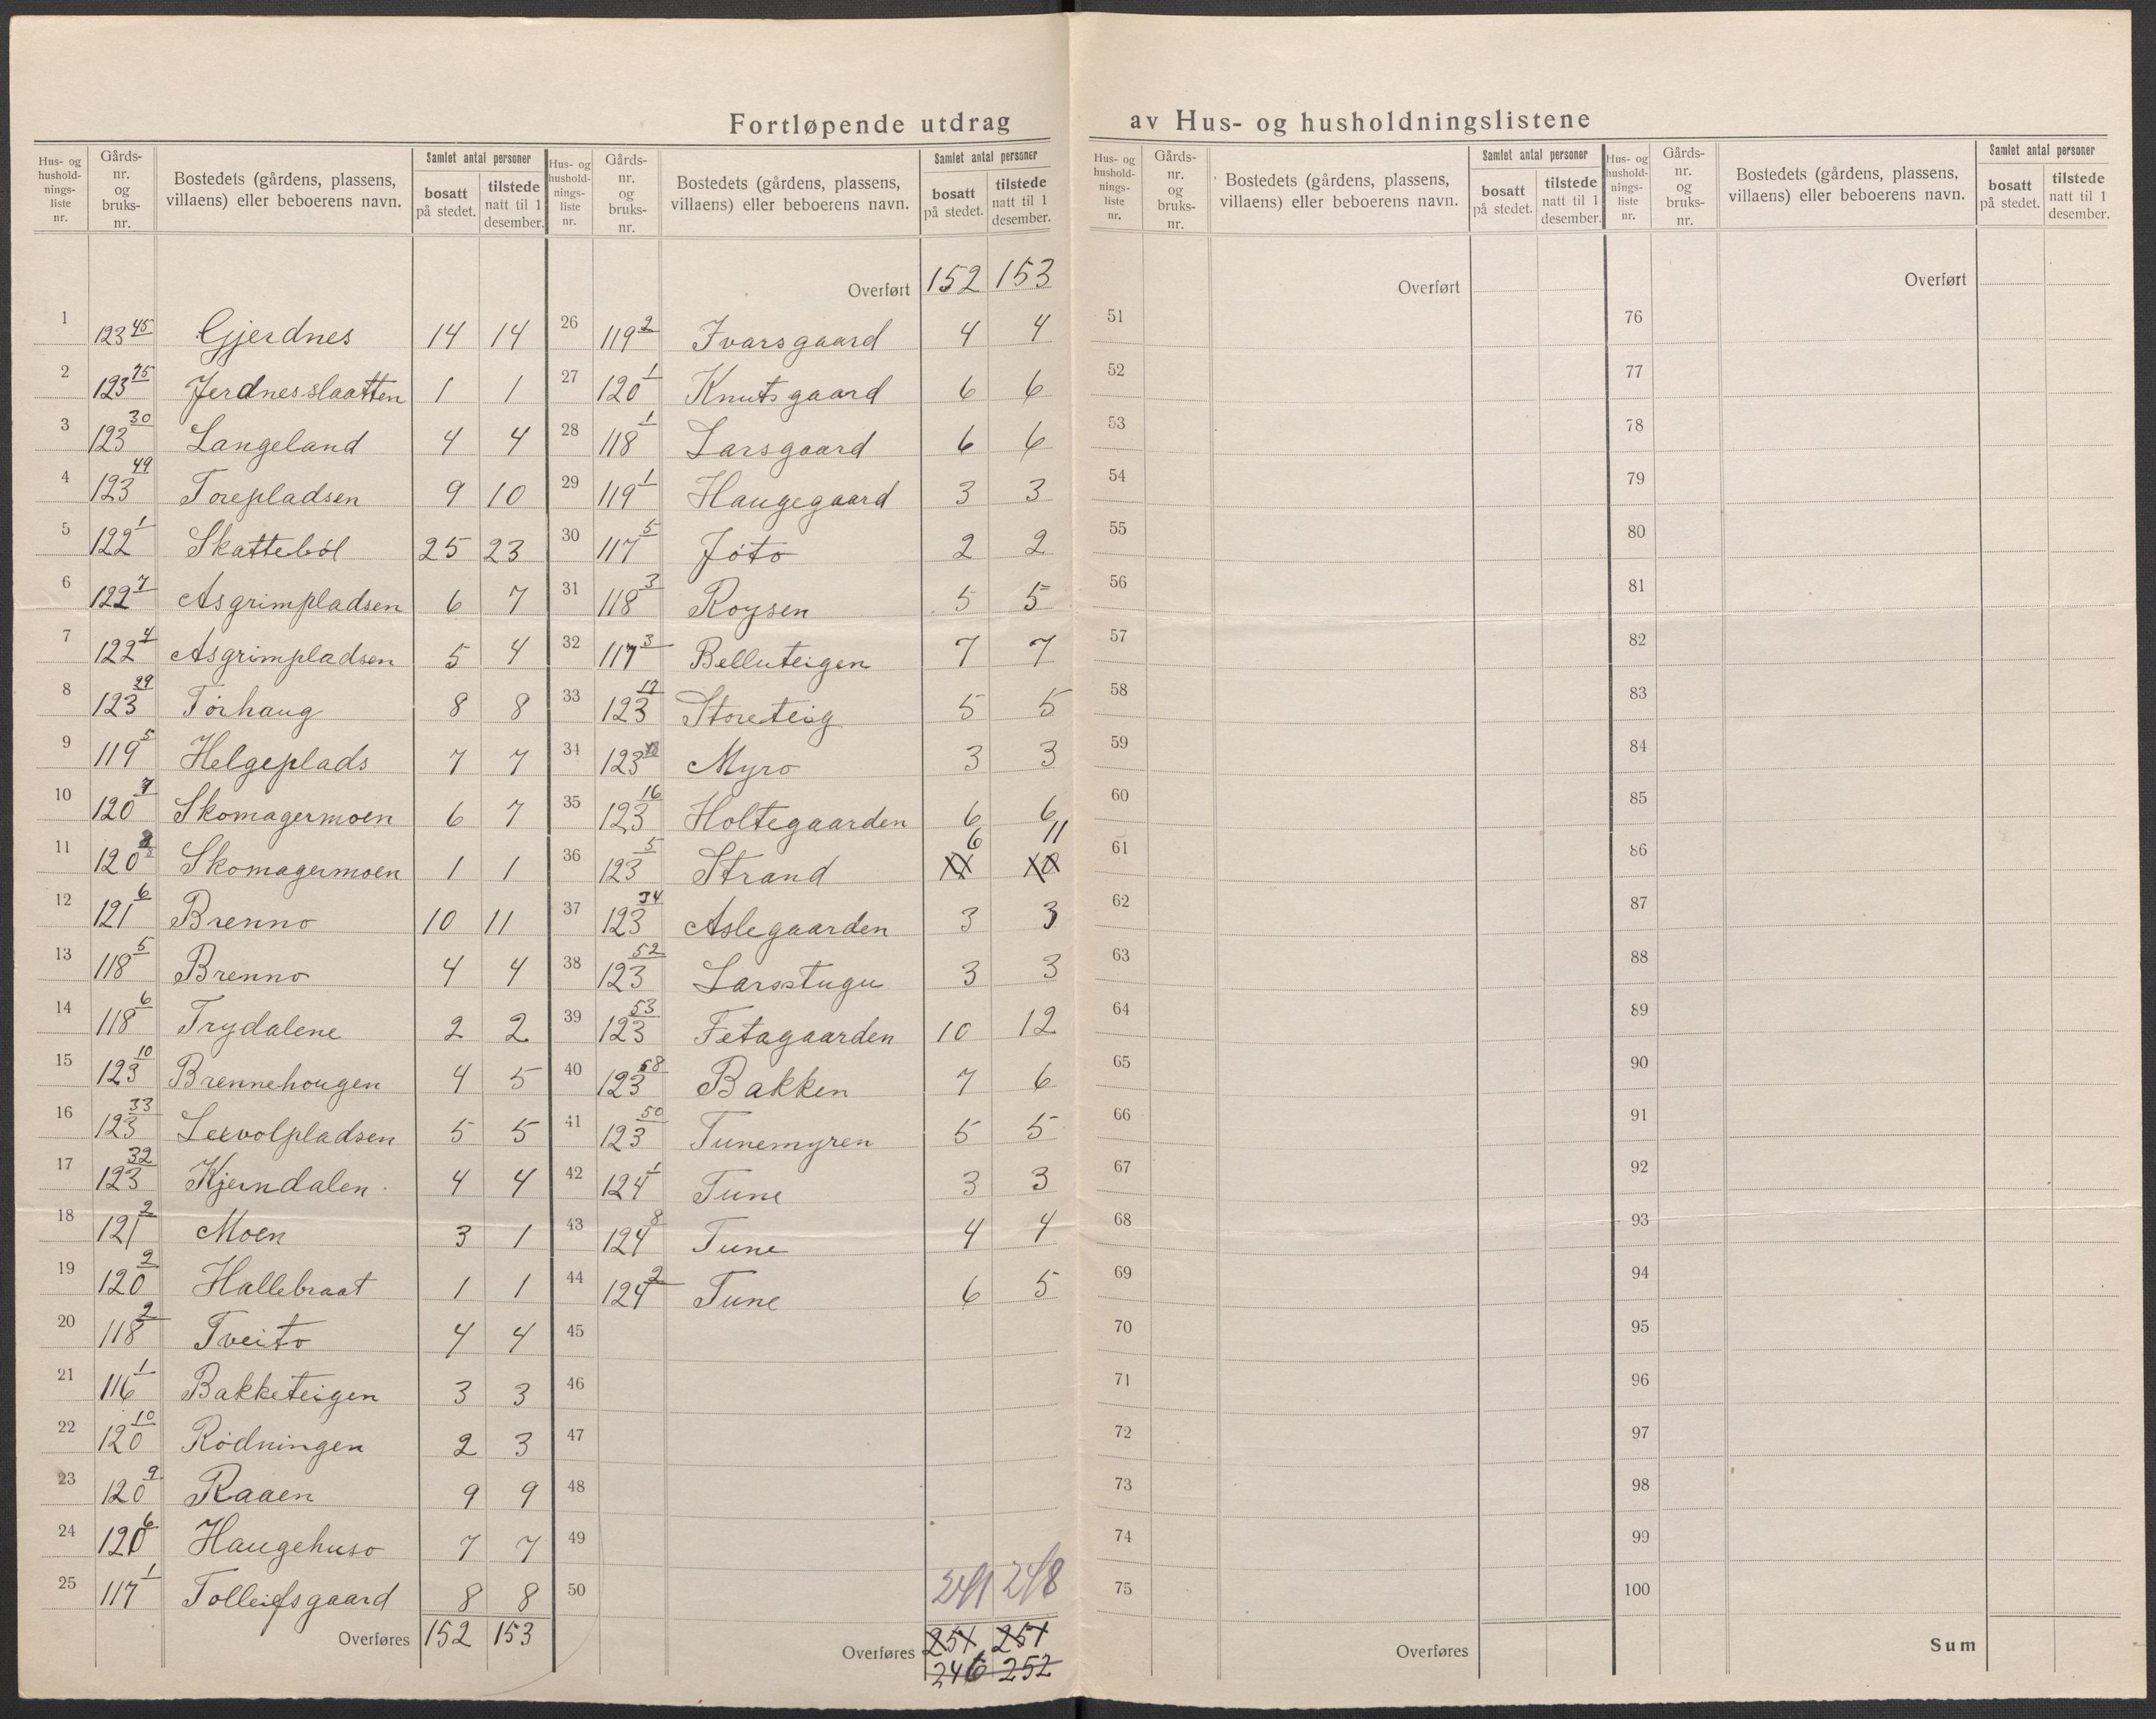 Fortløpende utdrag av Hus- og husholdningslistene
Hus- og husholdnings- liste nr. | Gårds- nr. og bruks- nr. | Bostedets (gårdens, plassens, villaens) eller beboerens navn. | Samlet antal personer | bosatt på stedet. | tilstede natt til 1 desember.
1 123 45 Gjerdnes 14 14
2 123 75 Jerdnesslaatten 1 1
3 123 30 Langeland 4 4
4 123 49 Torepladsen 9 10
5 122 1 Skattebøl 25 23
6 122 7 Asgrimpladsen 6 7
7 122 4 Asgrimpladsen 5 4
8 123 29 Torhaug 8 8
9 119 5 Helgeplads 7 7
10 120 7 Skomagermoen 6 7
11 120 8 Skomagermoen 1 1
12 121 6 Brenno 10 11
13 118 5 Brenno 4 4
14 118 6 Trydalene 2 2
15 123 10 Brennehougen 4 5
16 123 33 Leevolpladsen 5 5
17 123 32 Kjerndalen 4 4
18 121 2 Moen 3 1
19 120 2 Hallebraat 1 1
20 118 2 Tveito 4 4
21 116 1 Bakketeigen 3 3
22 120 10 Rødningen 2 3
23 120 9 Raaen 9 9
24 120 6 Haugehuso 7 7
25 117 1 Tolleifsgaard 8 8
Overføres 152 153
Hus- og husholdnings- liste nr. | Gårds- nr. og bruks- nr. | Bostedets (gårdens, plassens, villaens) eller beboerens navn. | Samlet antal personer | bosatt på stedet. | tilstede natt til 1 desember.
Overført 152 153
26 119 2 Ivarsgaard 4 4
27 120 1 Knutsgaard 6 6
28 118 1 Larsgaard 6 6
29 119 1 Haugegaard 3 3
30 117 5 Jøto 2 2
31 118 3 Roysen 5 5
32 117 3 Belluteigen 7 7
33 123 12 Storeteig 5 5
34 123 Myro 3 3
35 123 16 Holtegaarden 6 6
36 123 5 Strand 6 11
37 123 34 Aslegaarden 3 3
38 123 52 Larsstugu 3 3
39 123 53 Fetagaarden 10 12
40 123 68 Bakken 7 6
41 123 50 Tunemyren 5 5
42 124 1 Tune 3 3
43 124 8 Tune 4 4
44 124 2 Tune 6 5
45
46
47
48
49
50
241 248
Overføres 251 251
246 252
Hus- og husholdnings- liste nr. | Gårds- nr. og bruks- nr. | Bostedets (gårdens, plassens, villaens) eller beboerens navn. | Samlet antal personer | bosatt på stedet. | tilstede natt til 1 desember.
Overført
51
52
53
54
55
56
57
58
59
60
61
62
63
64
65
66
67
68
69
70
71
72
73
74
75
Overføres
Hus- og husholdnings- liste nr. | Gårds- nr. og bruks- nr. | Bostedets (gårdens, plassens, villaens) eller beboerens navn. | Samlet antal personer | bosatt på stedet. | tilstede natt til 1 desember.
Overført
76
77
78
79
80
81
82
83
84
85
86
87
88
89
90
91
92
93
94
95
96
97
98
99
100
Sum